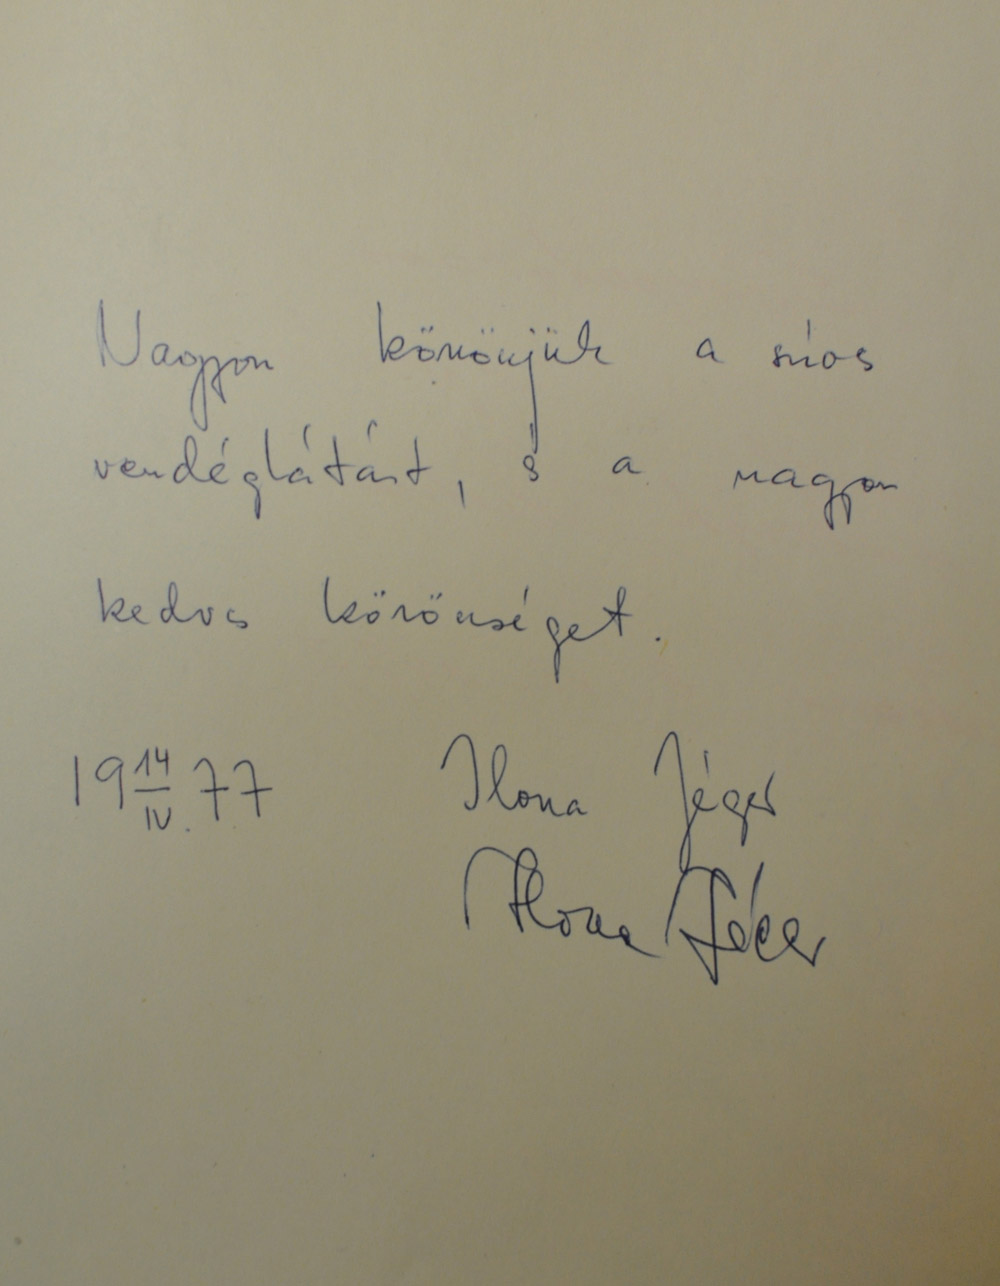 Nagyon köszönjük a szíves
vendéglátást, és a nagyon
kedves közönséget.
19 14/IV. 77
Ilona Jéger
Ilona Jéger